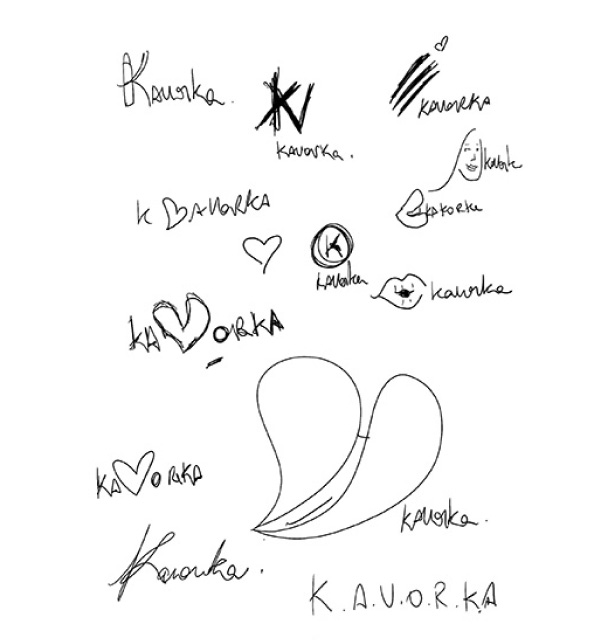 Kavorka.
KV
KAVORKA
Kavorka.
K AVORKA
KAKORKA
K
kavorka
KA ORKA
KA ORKA
Kavorka.
Kavorka.
K.A.V.O.R.KA